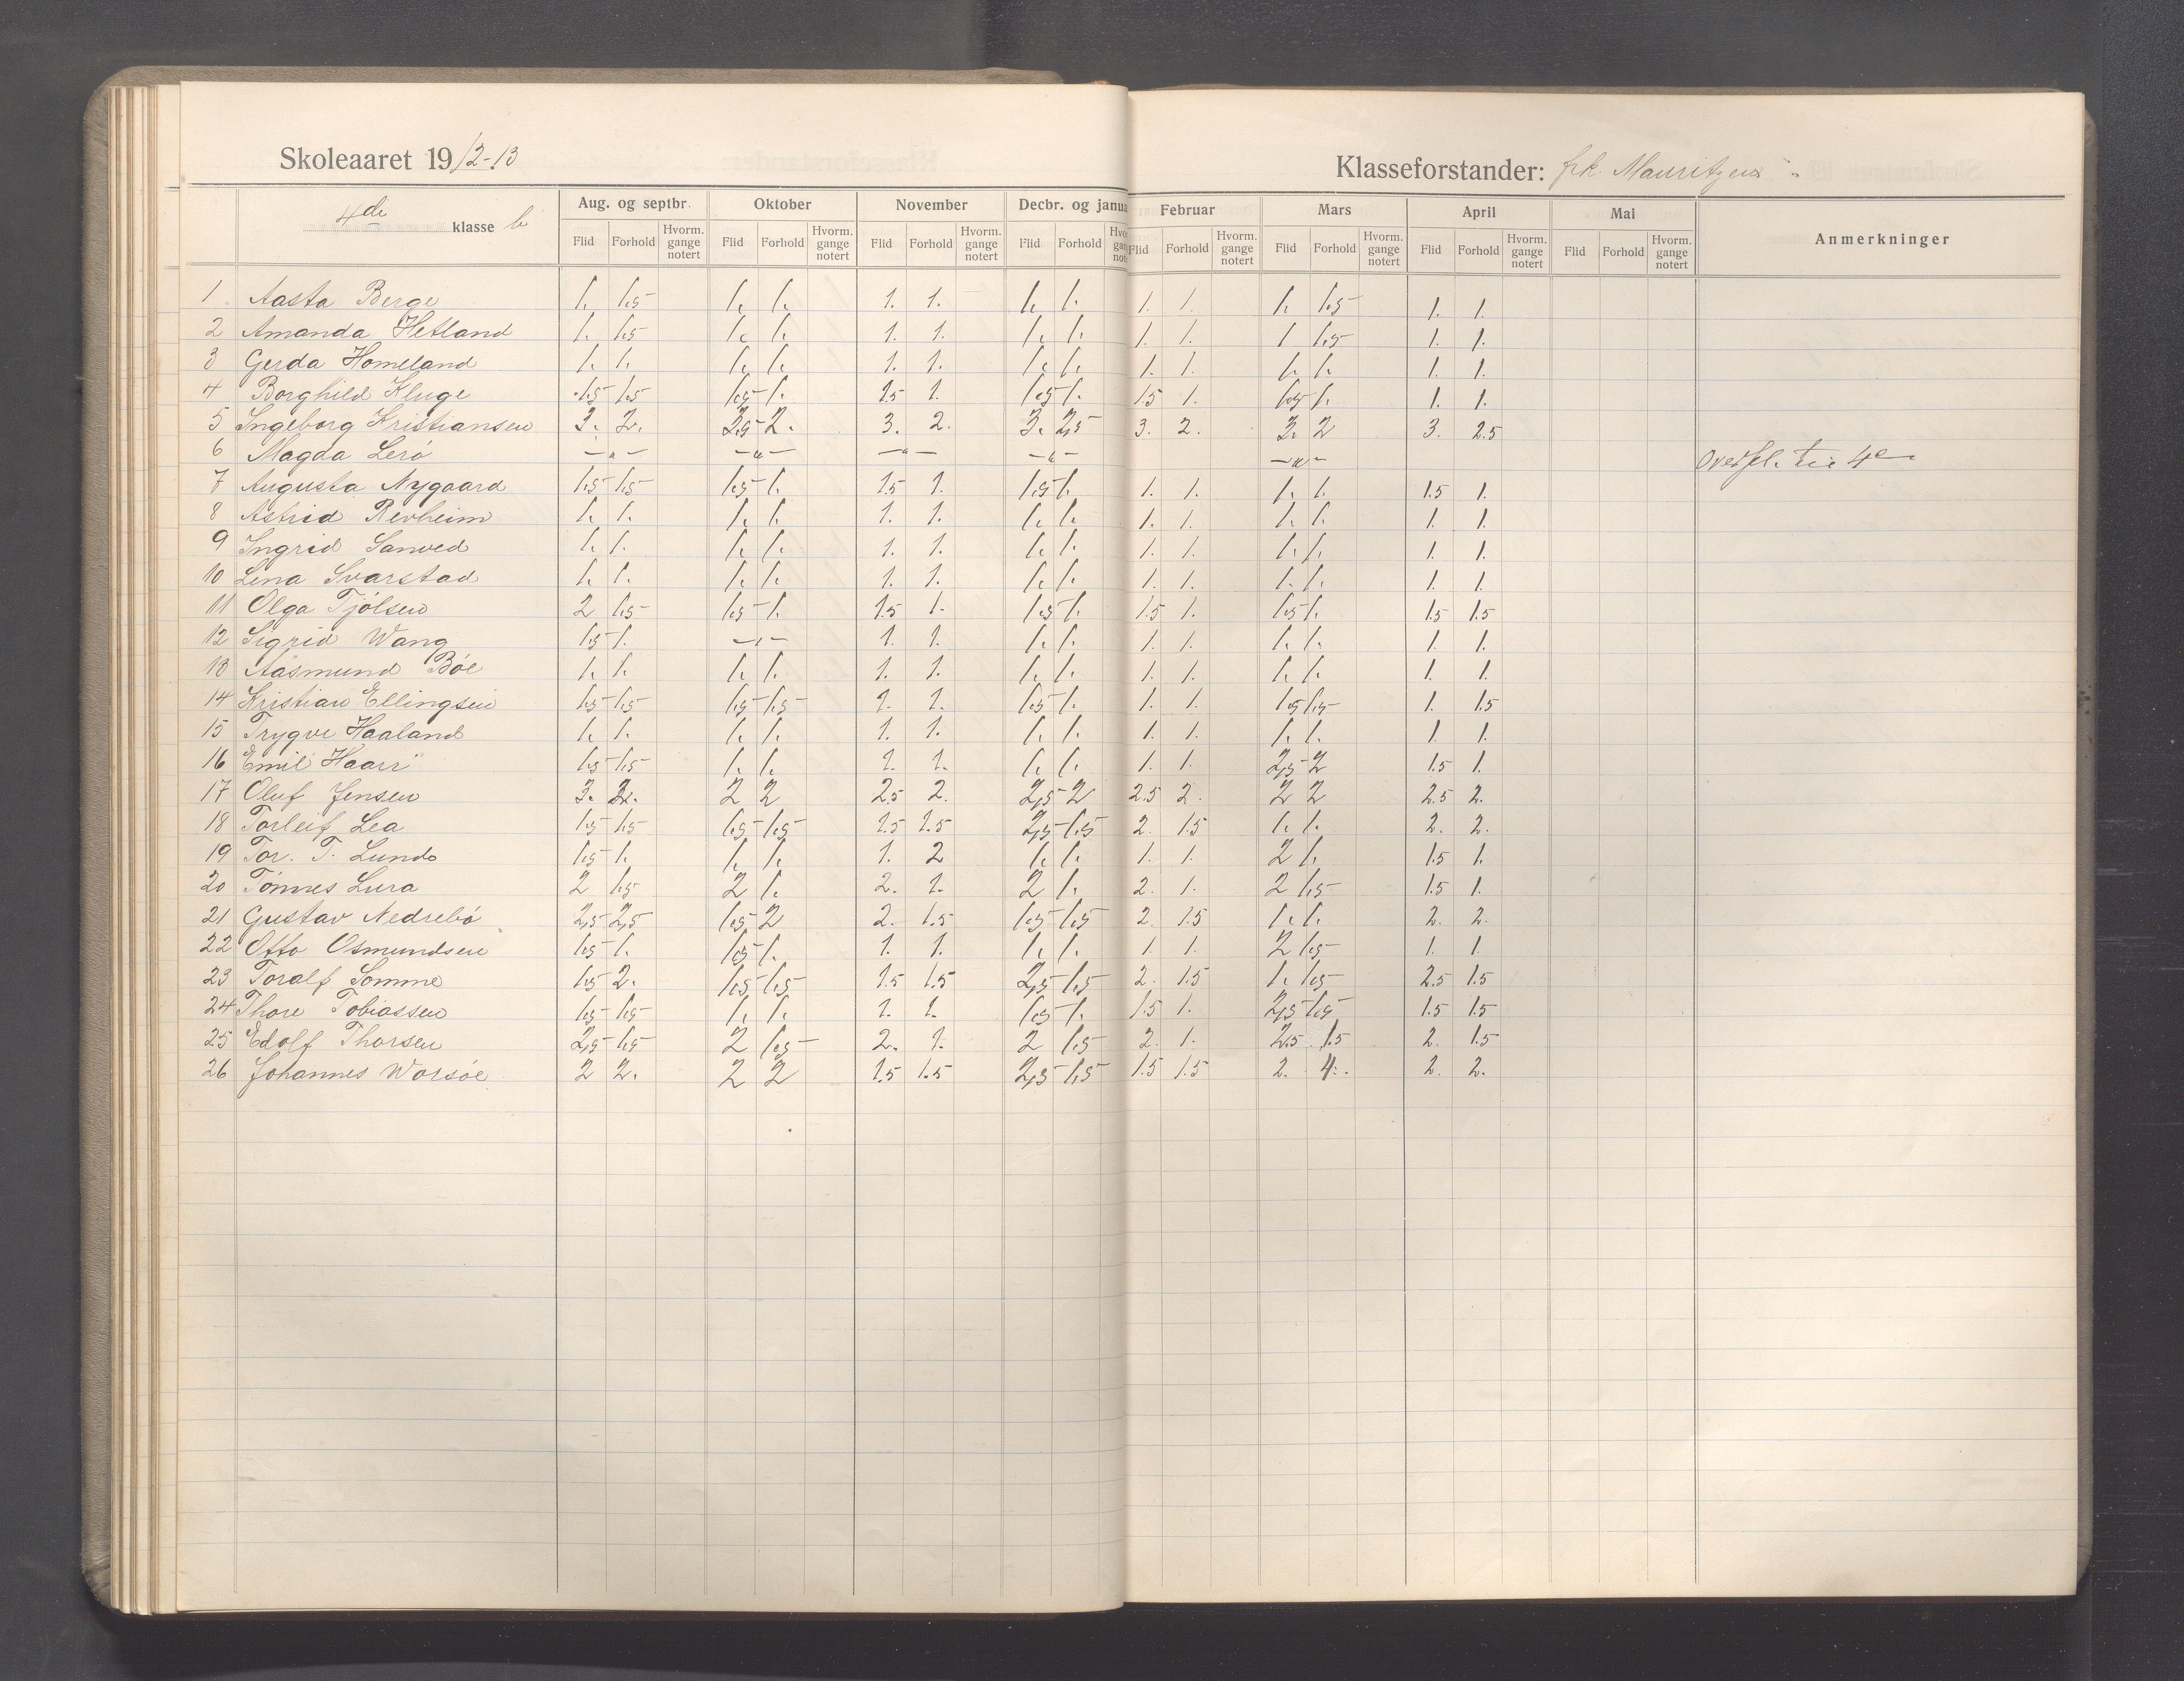 Skoleaaret 1912-13
Klasseforstander: frk. Mauritzen
4de klasse b
Aug. og septbr. Oktober November Decbr. og janua Februar Mars April Mai Anmerkninger
Flid Forhold Hvorm. gange notert Flid Forhold Hvorm. gange notert Flid Forhold Hvorm. gange notert Flid Forhold Flid Forhold Hvorm. gange notert Flid Forhold Hvorm. gange notert Flid Forhold Hvorm. gange notert Flid Forhold Hvorm. gange notert
1 Aasta Berge 1. 1.5 1. 1. 1. 1. 1. 1. 1. 1. 1. 1.5 1. 1.
2 Amanda Hetland 1. 1.5 1. 1. 1. 1. 1. 1. 1. 1. 1 1.5 1. 1.
3 Gerda Homeland 1. 1. 1. 1. 1. 1. 1. 1. 1. 1. 1. 1. 1. 1.
4 Borghild Kluge 1.5 1.5 1.5 1. 1.5 1. 1.5 1. 1.5 1. 1.5 1. 1. 1.
5 Ingeborg Kristiansen 3. 2. 3.5 2. 3. 2. 3. 2,5 3. 2. 3. 2 3. 2.5
6 Magda Lerö — " — — " — — " — — " — — " — Overfl. til 4c
7 Augusta Nygaard 1.5 1.5 1.5 1. 1.5 1. 1.5 1. 1. 1. 1. 1. 1.5 1.
8 Astrid Revheim 1. 1. 1. 1. 1. 1. 1. 1. 1. 1. 1. 1. 1. 1.
9 Ingrid Sanved 1. 1. 1. 1. 1. 1. 1. 1. 1. 1. 1. 1. 1. 1.
10 Lena Svarstad 1. 1. 1. 1. 1. 1. 1. 1. 1. 1. 1. 1. 1. 1.
11 Olga Tjölsen 2 1.5 1.5 1. 1.5 1. 1.5 1. 1.5 1. 1.5 1. 1.5 1.5
12 Sigrid Wang 1.5 1. — " — 1. 1. 1. 1. 1. 1. 1. 1. 1. 1.
13 Aasmund Böe 1. 1. 1. 1. 1. 1. 1. 1. 1. 1. 1. 1. 1. 1.
14 Kristian Ellingsen 1.5 1.5 1.5 1.5 1. 1. 1.5 1. 1. 1. 1.5 1.5 1. 1.5
15 Trygve Haaland 1. 1. 1. 1. 1. 1. 1. 1. 1. 1. 1. 1. 1. 1.
16 Emil Haarr 1.5 1.5 1. 1. 1. 1. 1. 1. 1. 1. 2,5 2 1.5 1.
17 Oluf Jensen 3. 2. 2 2 2.5 2. 2,5 2 2.5 2. 2 2 2.5 2.
18 Torleif Lea 1.5 1.5 1.5 1.5 1.5 1.5 2,5 1.5 2. 1.5 1. 1. 2. 2.
19 Tor. T. Lunde 1.5 1. 1. 1. 1. 2 1. 1. 1. 1. 2 1. 1.5 1.
20 Tönnes Lura 2 1.5 2 1. 2. 1. 2 1. 2. 1. 2 1.5 1.5 1.
21 Gustav Nedrebö 2,5 2,5 1.5 2 2. 1.5 1.5 1.5 2. 1.5 1. 1. 2. 2.
22 Otto Osmundsen 1.5 1. 1.5 1. 1. 1. 1. 1. 1. 1. 2 1.5 1. 1.
23 Toralf Somme 1.5 2. 1.5 1.5 1.5 1.5 2,5 1.5 2. 1.5 1. 1.5 2.5 1.5
24 Thore Tobiassen 1.5 1.5 1. 1. 1. 1. 1.5 1. 1.5 1. 2,5 1.5 1.5 1.5
25 Edolf Thorsen 2,5 1.5 2 1.5 2. 1. 2 1.5 2. 1. 2.5 1.5 2. 1.5
26 Johannes Worsöe 2 2. 2 2 1.5 1.5 2,5 1,5 1.5 1.5 2. 4. 2. 2.